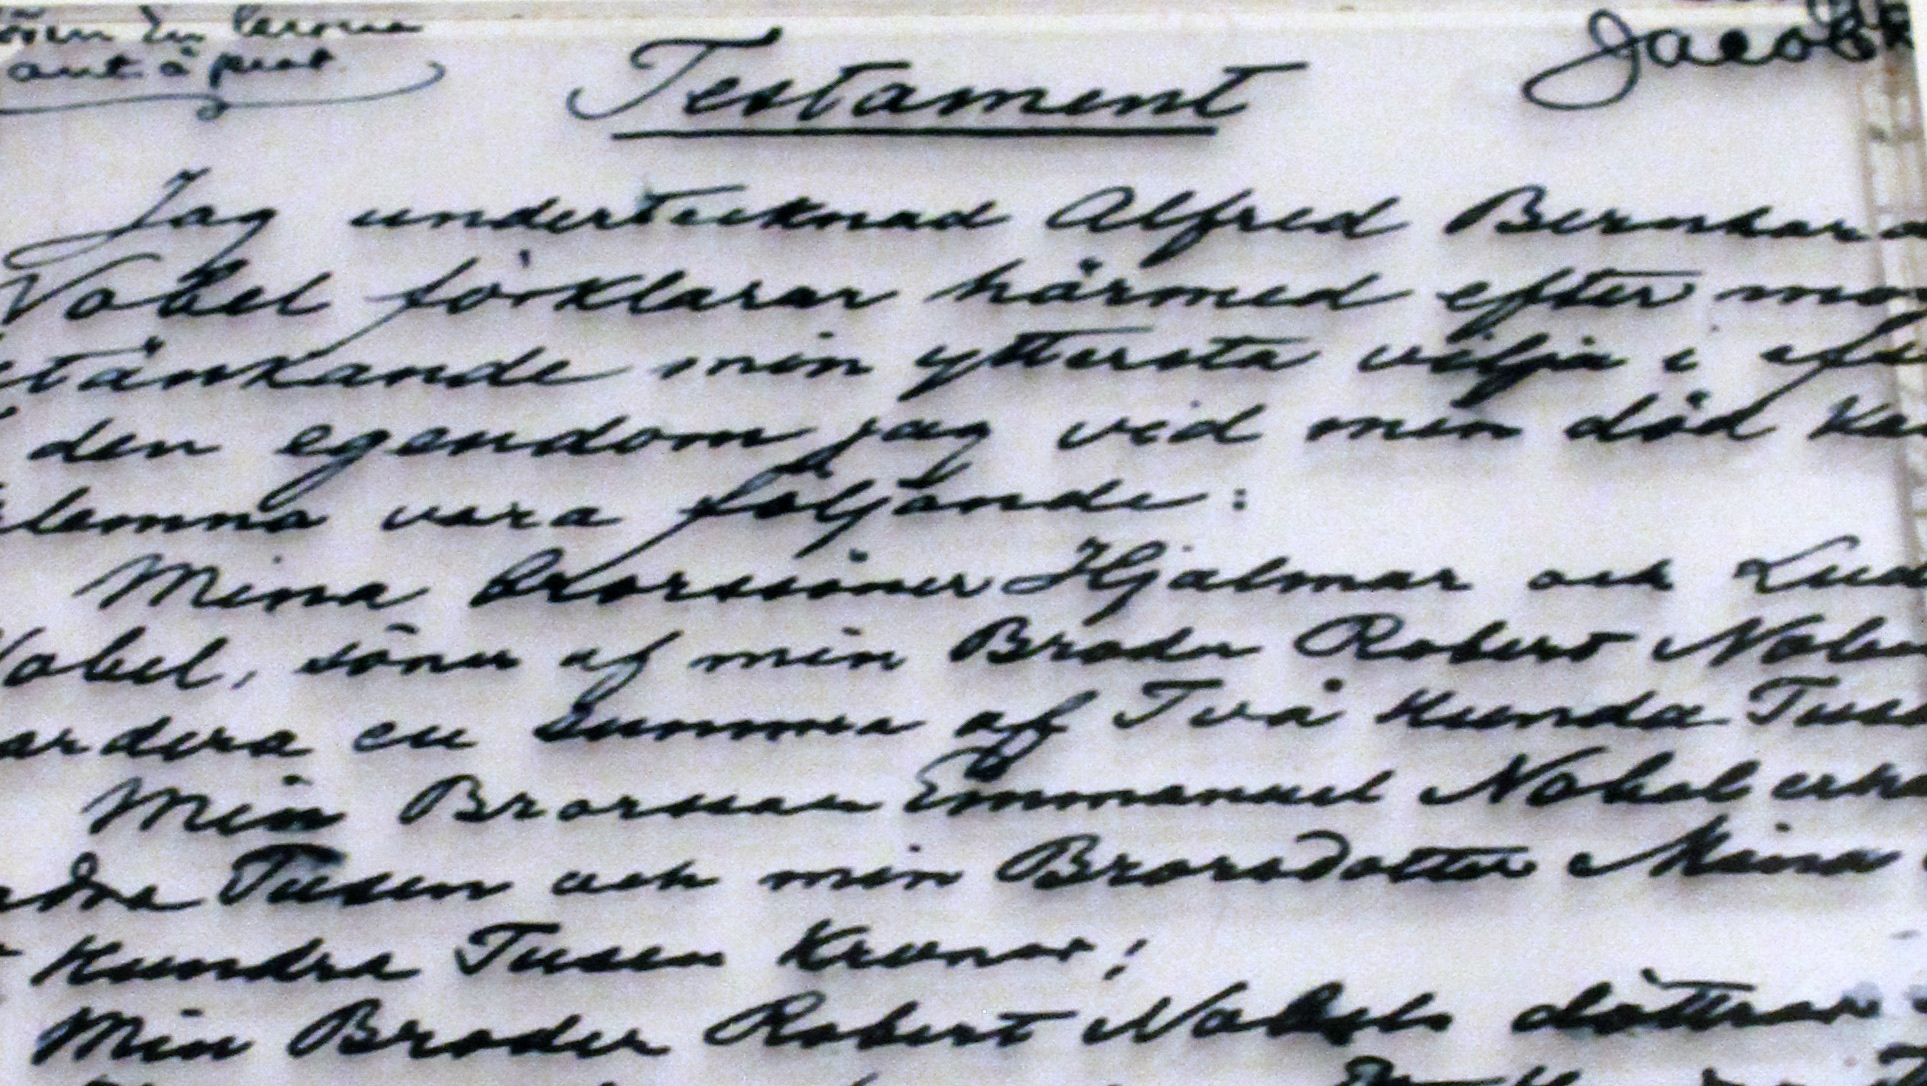 Testament
Jag undertecknad Alfred Bernhard
Nobel förklarar härmed efter mo
etänkande min yttersta vilja i afse
den egendom jag vid min död ka
rlemna vara följande:
Mina Brorssöner Hjalmar och Lud
Nobel, söner af min Broder Robert Nobel
ardera en summa af Två Hundra Tuse
Min Brorson Emmanuel Nobel erhå
ndra Tusen och min Brorsdotter Mina
Hundra Tusen Kronor;
Min Broder Robert Nobels döttrar